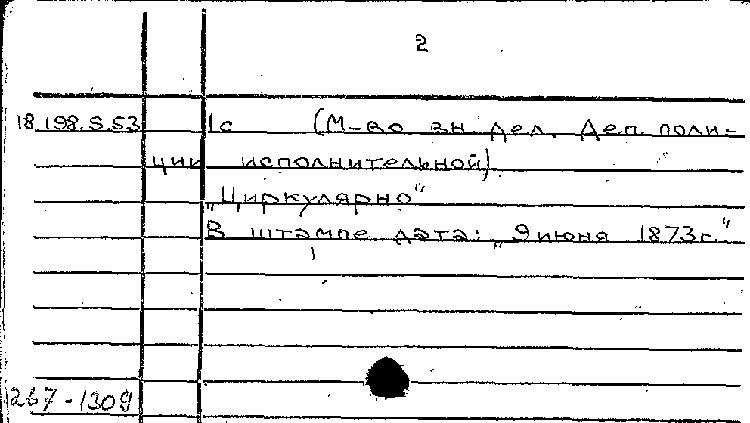 2
18.198.5.53 1с (М-во вн. дел. Деп. поли-
ции исполнительной)
„Циркулярно“
В штампе дата: „9 июня 1873г.“
267-1309